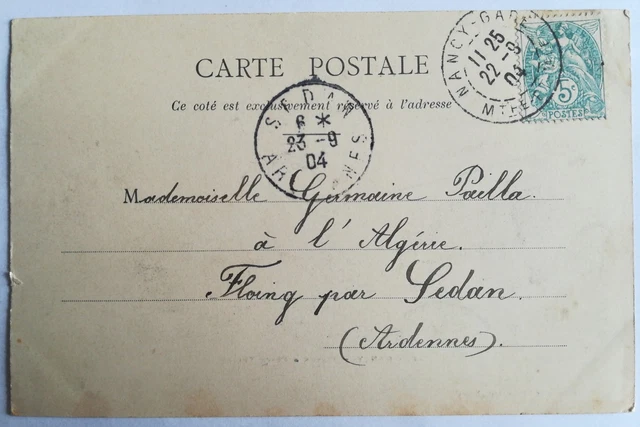 CARTE POSTALE
Ce coté est exclusivement réservé à l'adresse
NANCY-GARE
11 25
22 - 9
04
5c
POSTES
SEDAN
6 *
23 - 9
04
ARDENNES
Mademoiselle Germaine Pailla.
à l'Algérie.
Floing par Sedan.
(Ardennes).